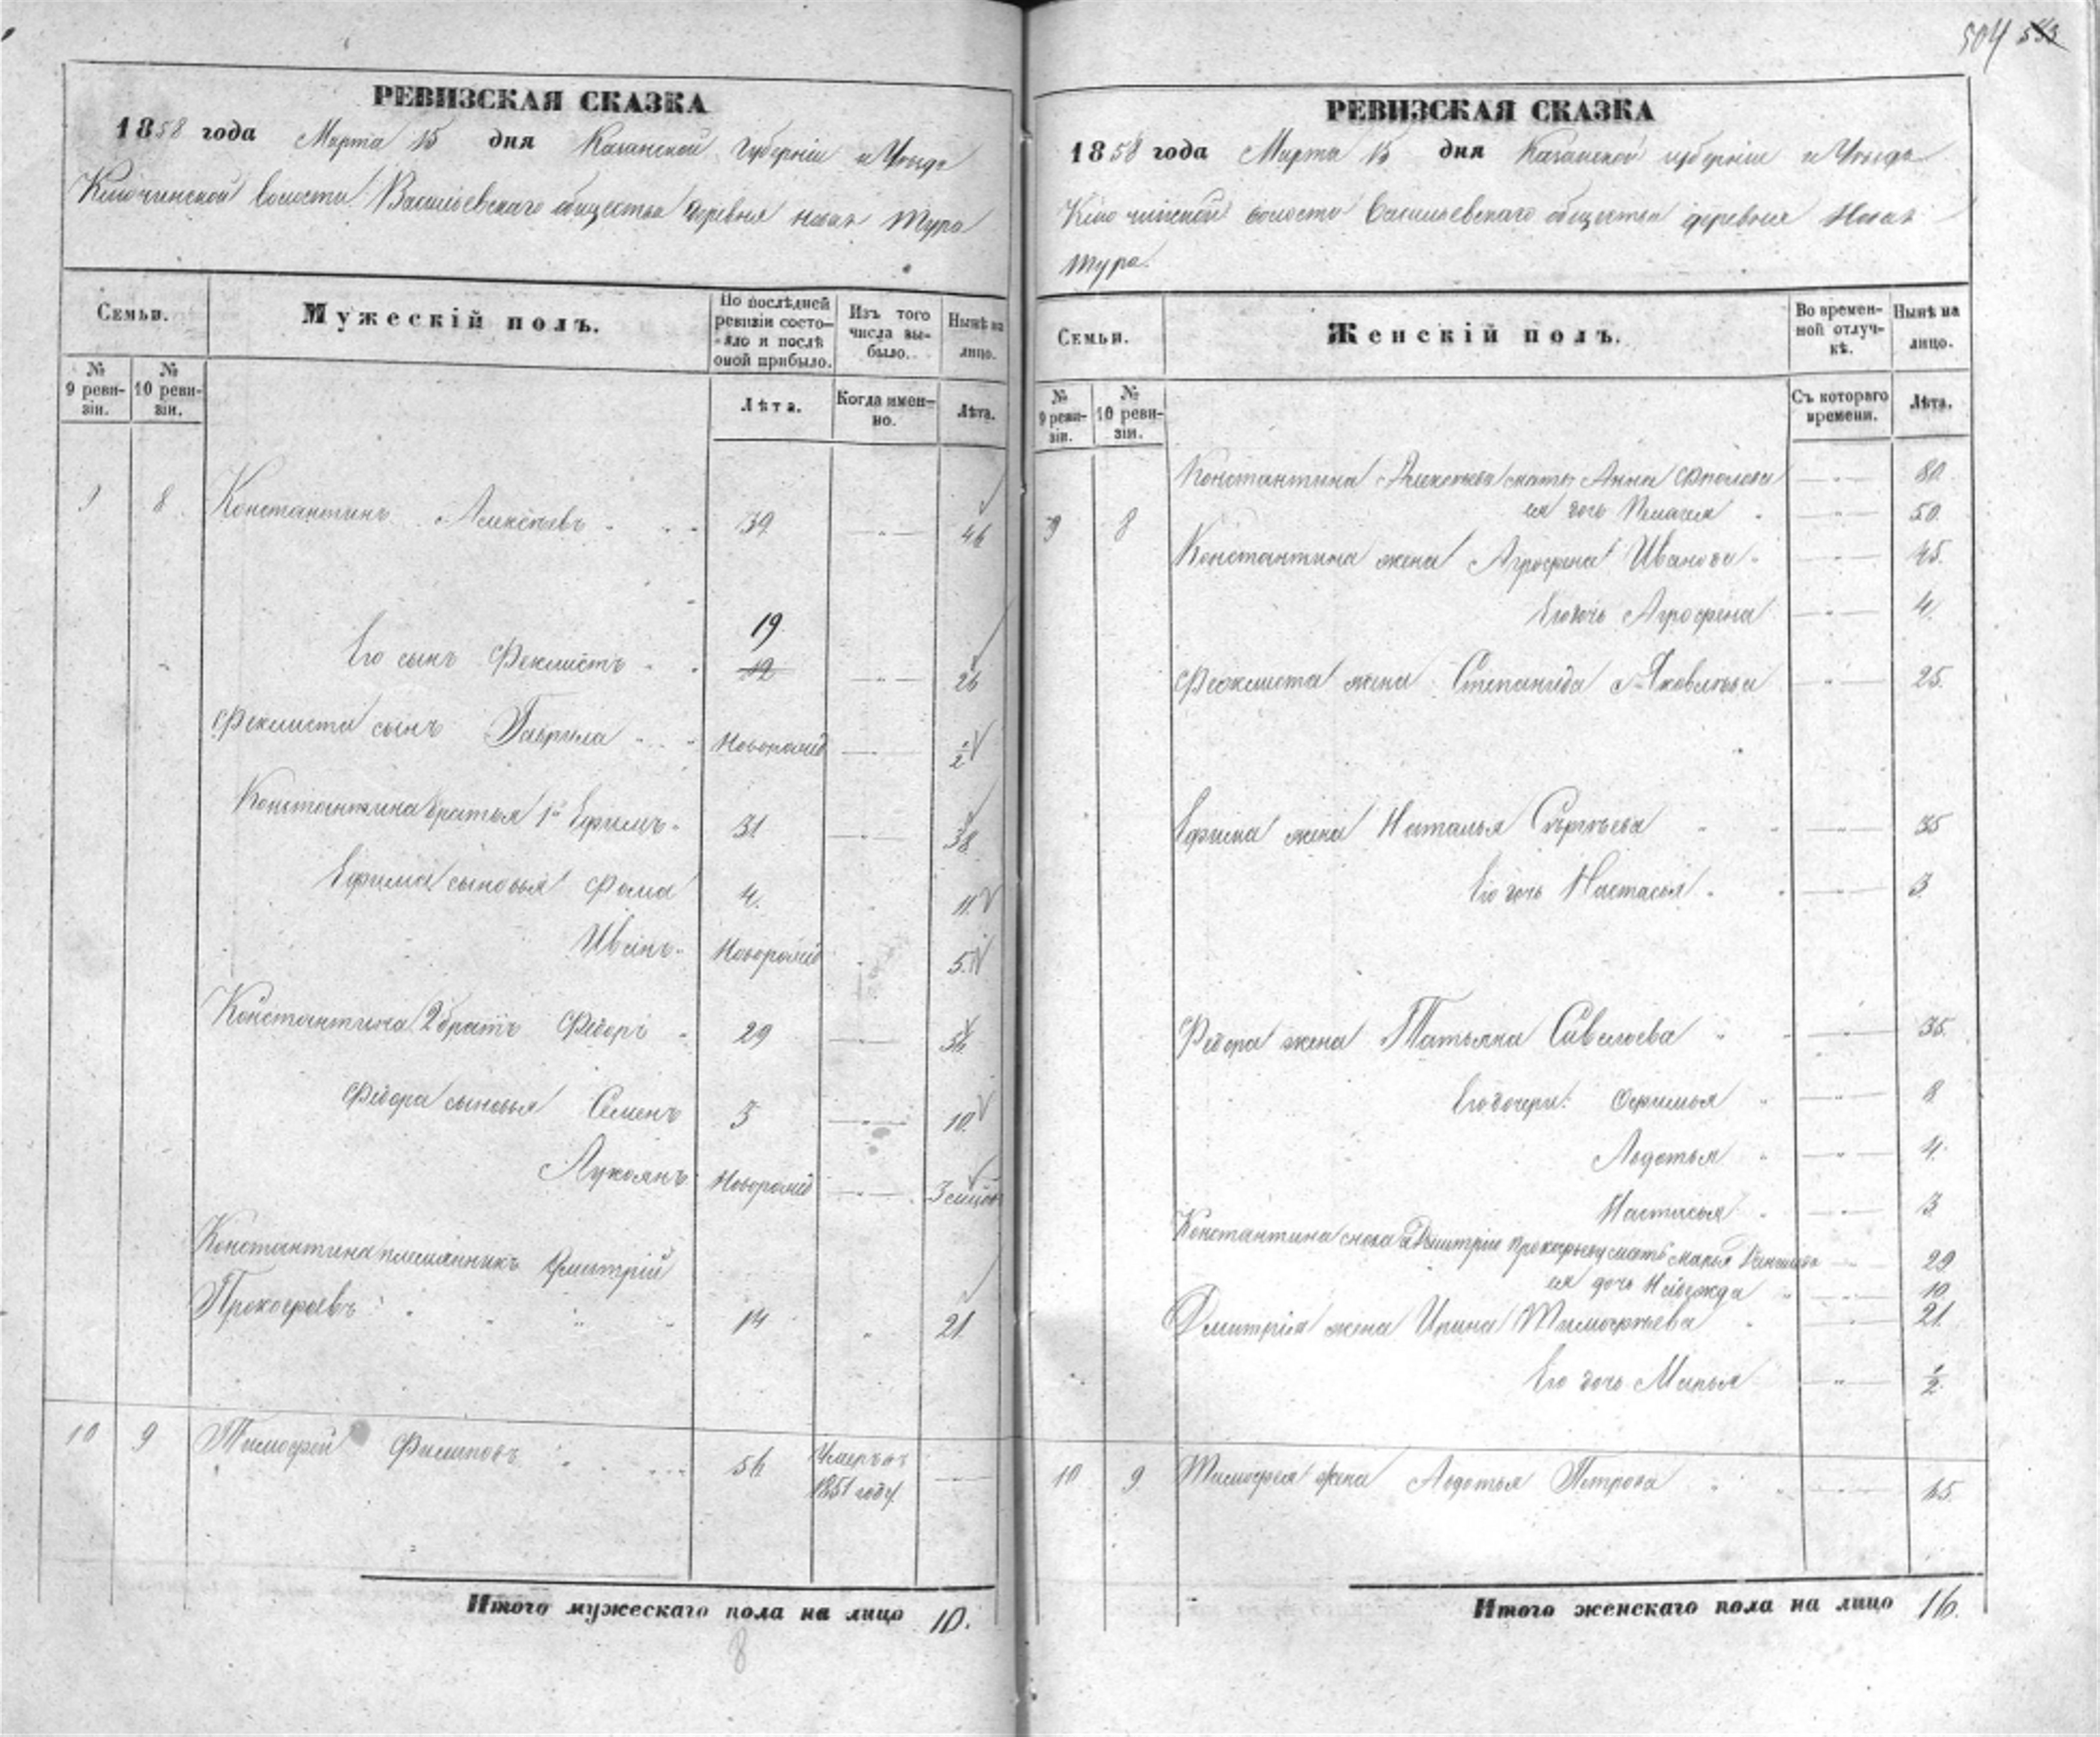 504 533
РЕВИЗСКАЯ СКАЗКА
1858 года Марта 15 дня Казанской губерніи и Уѣзда
Ключинской волости Васильевскаго общества деревня новая Тура
Семьи.
Мужескій полъ.
По послѣдней ревизіи состояло и послѣ оной прибыло.
Изъ того числа выбыло.
Нынѣ на лицо.
№ 9 ревизіи.
№ 10 ревизіи.
Лѣта.
Когда именно.
Лѣта.
9 8 Константинъ Алексѣевъ 39 — " — 46
19
Его сынъ Феклистъ 12 — " — 26
Феклиста сынъ Гаврила Новорожд — " — 1/2
Константина братья 1й Ефимъ 31 — " — 38
Ефима сыновья Фома 4. 11.
Иванъ Новорожд 5.
Константина 2 братъ Федоръ 29 — " — 36
Федора сыновья Семенъ 3 — " — 10.
Лукоянъ Новорожд — " — 3 мцов
Константина племянникъ Дмитрій
Прокофьевъ 14 " 21.
10 9 Тимофей Филиповъ 56 Умеръ въ —
1851 году.
Итого мужескаго пола на лицо 10.
8
РЕВИЗСКАЯ СКАЗКА
1858 года Марта 15 дня Казанской губерніи и Уѣзда
Ключинской волости Васильевскаго общества деревня Новая
Тура.
Семьи.
Женскій полъ.
Во временной отлучкѣ.
Нынѣ на лицо.
№ 9 ревизіи.
№ 10 ревизіи.
Съ котораго времени.
Лѣта.
Константина Алексѣева мать Анна — " — 80.
ея дочь Пелагея — " — 50.
9 8 Константина жена Агрофена Иванова — " — 45.
Его дочь Агрофена — " — 4.
Феоклиста жена Степанида Яковлева — " — 25.
Ефима жена Наталья Сергѣева — " — 35
Его дочь Настасья — " — 3.
Федора жена Татьяна Савельева — " — 35.
Его дочери: Офимья — " — 8
Авдотья — " — 4.
Настасья 3.
Константина сноха а Дмитрія Прокофьеву мать Марья — " — 29
ея дочь Надежда — " — 10.
Дмитрія жена Ирина Тимофѣева — " — 21.
Его дочь Марья — " — 1/2.
10 9 Тимофея жена Авдотья Петрова — " — 65.
Итого женскаго пола на лицо 16.